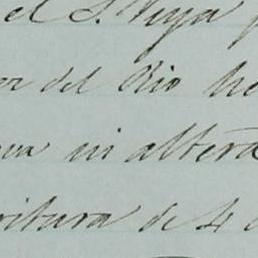 el S. Veya
or del Rio he
ni altera
ritura de 4